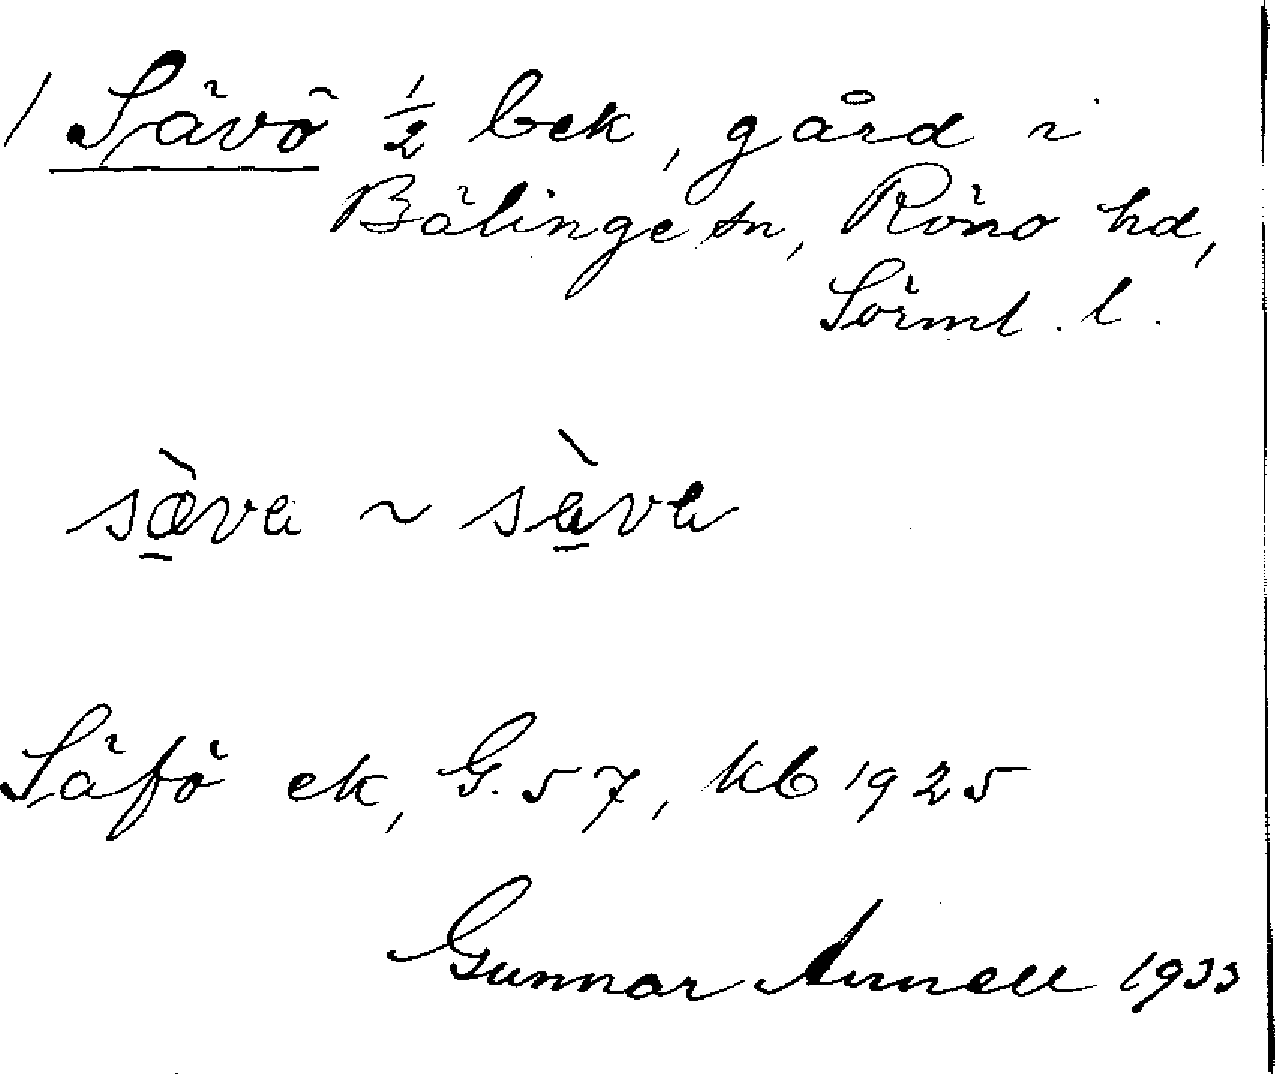 1 Sävö 1/2 bek, gård i
Bälinge sn, Rönö hd,
Sörml. l.
sæ̠̀va ~ sà̠va
Säfö ek, G. 57, kb 1925
Gunnar Arnell 1933